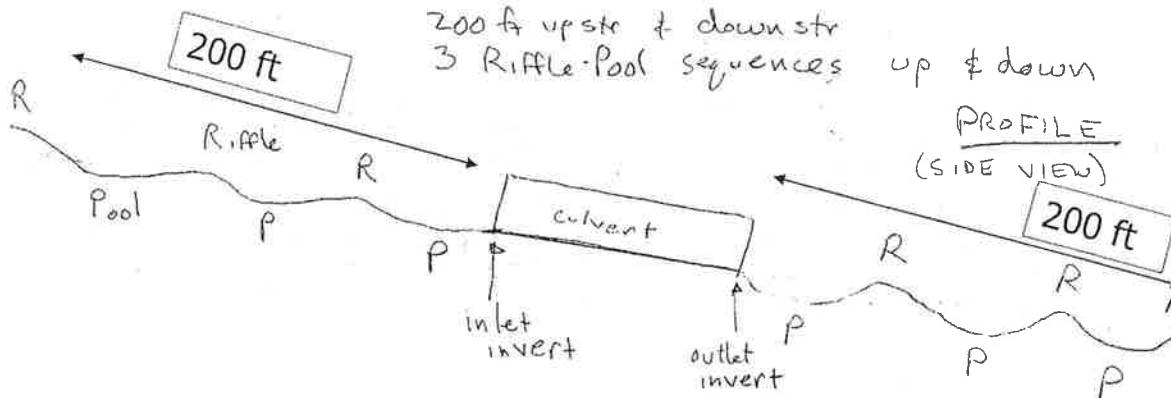 200 ft upstr & downstr
3 Riffle-Pool sequences up & down
PROFILE
(SIDE VIEW)
200 ft
R
Riffle
R
Pool
P
P
culvert
inlet
invert
outlet
invert
200 ft
R
R
P
P
P